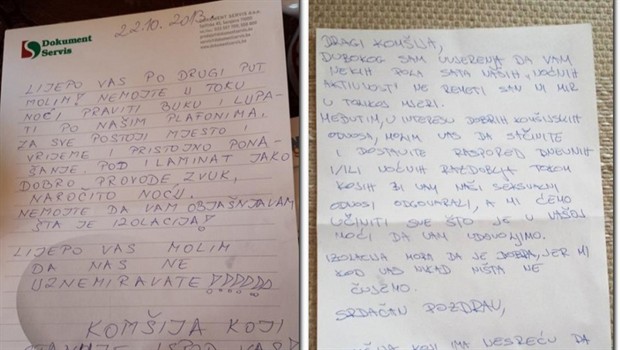 Dokument
Servis
22.10.2013
DOKUMENT SERVIS d.o.o.
LIJEPO VAS PO DRUGI PUT
MOLIM! NEMOJTE U TOKU
NOĆI PRAVITI BUKU I LUPA-
TI PO NAŠIM PLAFONIMA,
ZA SVE POSTOJI MJESTO I
VRIJEME PRISTOJNO PONA-
ŠANJE. POD I LAMINAT JAKO
DOBRO PROVODE ZVUK,
NAROČITO NOĆU.
NEMOJTE DA VAM OBJAŠNJAVAM
ŠTA JE IZOLACIJA!
LIJEPO VAS MOLIM
DA NAS NE
UZNEMIRAVATE!!!!!!
KOMŠIJA KOJI
STANUJE ISPOD VAS!
DRAGI KOMŠIJA,
DUBOKOG SAM UVJERENJA DA VAM
NEKIH POLA SATA NAŠIH „NOĆNIH
AKTIVNOSTI" NE REMETI SAN NI MIR
U TOLIKOJ MJERI.
MEĐUTIM, U INTERESU DOBRIH KOMŠIJSKIH
ODNOSA, MOLIM VAS DA SAČINITE
I DOSTAVITE RASPORED DNEVNIH
I/ILI NOĆNIH RAZDOBLJA TOKOM
KOJIH BI VAM NAŠI SEKSUALNI
ODNOSI ODGOVARALI, A MI ĆEMO
UČINITI SVE ŠTO JE U NAŠOJ
MOĆI DA VAM UDOVOLJIMO.
IZOLACIJA MORA DA JE DOBRA, JER MI
KOD VAS NIKAD NIŠTA NE
ČUJEMO.
SRDAČAN POZDRAV,
KOJI IMA NESREĆU DA